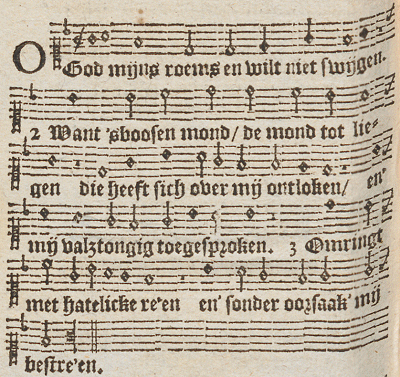 O God mijns roems en wilt niet swijgen.
2 Want 'sboosen mond/ de mond tot lie-
gen die heeft sich over mij ontloken/ en'
mij valztongig toegesproken. 3 Omringt
met hatelicke re'en en' sonder oorsaak' mij
bestre'en.